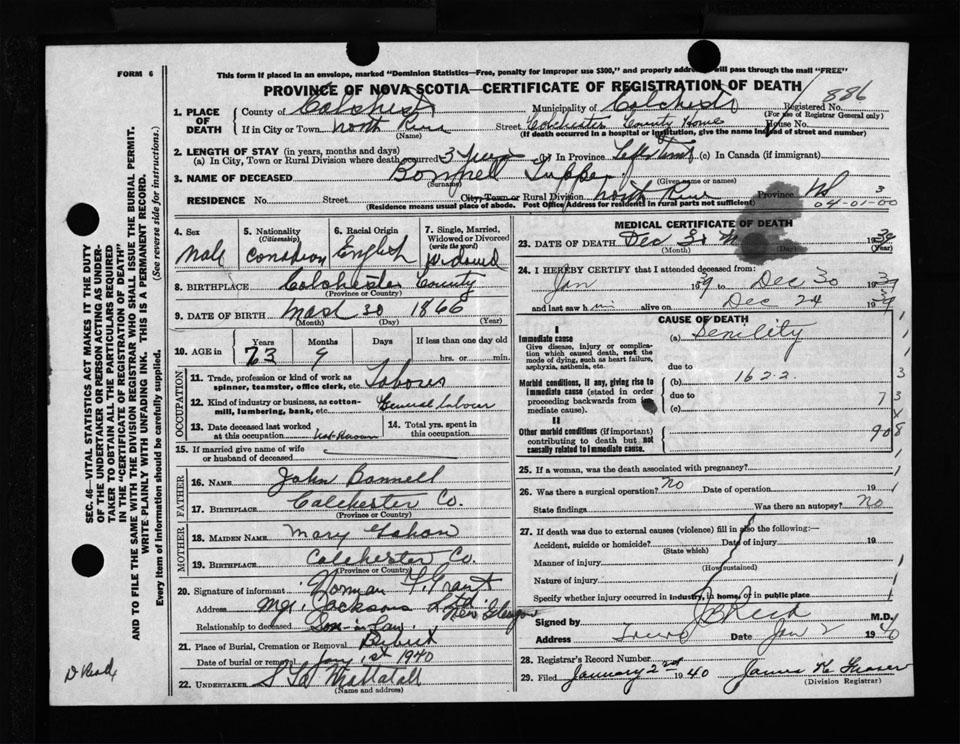 FORM 6
This form if placed in an envelope, marked "Dominion Statistics—Free, penalty for improper use $300," and properly addressed will pass through the mail "FREE"
PROVINCE OF NOVA SCOTIA—CERTIFICATE OF REGISTRATION OF DEATH
886
1. PLACE OF DEATH
County of Colchester Municipality of Colchester Registered No.
(For use of Registrar General only)
If in City or Town North River Street Colchester County Home House No.
(Name) (If death occurred in a hospital or institution, give the name instead of street and number)
2. LENGTH OF STAY (in years, months and days)
(a) In City, Town or Rural Division where death occurred 3 years (b) In Province Life time (c) In Canada (if immigrant)
3. NAME OF DECEASED Bonnell Tupper
(Surname) (Given name or names)
RESIDENCE No. Street City, Town or Rural Division North River Province NS
(Residence means usual place of abode. Post Office Address for residents in rural parts not sufficient)
3
04-01-00
4. Sex Male
5. Nationality (Citizenship) Canadian
6. Racial Origin English
7. Single, Married, Widowed or Divorced (write the word) Widowed
8. BIRTHPLACE Colchester County
(Province or Country)
9. DATE OF BIRTH 30 1866
(Month) (Day) (Year)
10. AGE in Years Months Days If less than one day old
73 9 hrs. or min.
OCCUPATION
11. Trade, profession or kind of work as spinner, teamster, office clerk, etc. Laborer
12. Kind of industry or business, as cotton-mill, lumbering, bank, etc. General labour
13. Date deceased last worked at this occupation Not Known
14. Total yrs. spent in this occupation
15. If married give name of wife or husband of deceased
FATHER
16. NAME John Bonnell
17. BIRTHPLACE Colchester Co.
(Province or Country)
MOTHER
18. MAIDEN NAME Mary
19. BIRTHPLACE Colchester Co.
(Province or Country)
20. Signature of informant Norman F. Grant
Address Mgr. Jacksons Ltd. New Glasgow
Relationship to deceased Son-in-law
21. Place of Burial, Cremation or Removal
Date of burial or removal Jany 1st 1940
22. UNDERTAKER Mattatall
(Name and address)
MEDICAL CERTIFICATE OF DEATH
23. DATE OF DEATH Dec 1939
(Month) (Day) (Year)
24. I HEREBY CERTIFY that I attended deceased from:
Jan 1939 to Dec 30 1939
and last saw him alive on Dec 24 1939
CAUSE OF DEATH
I
Immediate cause (a) Senility
Give disease, injury or complication which caused death, not the mode of dying, such as heart failure, asphyxia, asthenia, etc.
due to
Morbid conditions, if any, giving rise to immediate cause (stated in order proceeding backwards from immediate cause).
(b) 162.2.
due to
(c)
II
Other morbid conditions (if important) contributing to death but not causally related to immediate cause.
908
25. If a woman, was the death associated with pregnancy?
26. Was there a surgical operation? No Date of operation 19
State findings Was there an autopsy? No
27. If death was due to external causes (violence) fill in also the following:—
Accident, suicide or homicide? Date of injury 19
(State which)
Manner of injury
(How sustained)
Nature of injury
Specify whether injury occurred in industry, in home, or in public place
Signed by M.D.
Address Truro Date Jan 2 1940
28. Registrar's Record Number
29. Filed January 2nd 1940 James Fraser
(Division Registrar)
SEC. 46—VITAL STATISTICS ACT MAKES IT THE DUTY
OF THE UNDERTAKER OR PERSON ACTING AS UNDER-
TAKER TO OBTAIN ALL THE PARTICULARS REQUIRED
IN THE "CERTIFICATE OF REGISTRATION OF DEATH"
AND TO FILE THE SAME WITH THE DIVISION REGISTRAR WHO SHALL ISSUE THE BURIAL PERMIT.
WRITE PLAINLY WITH UNFADING INK. THIS IS A PERMANENT RECORD.
Every item of information should be carefully supplied. (See reverse side for instructions.)